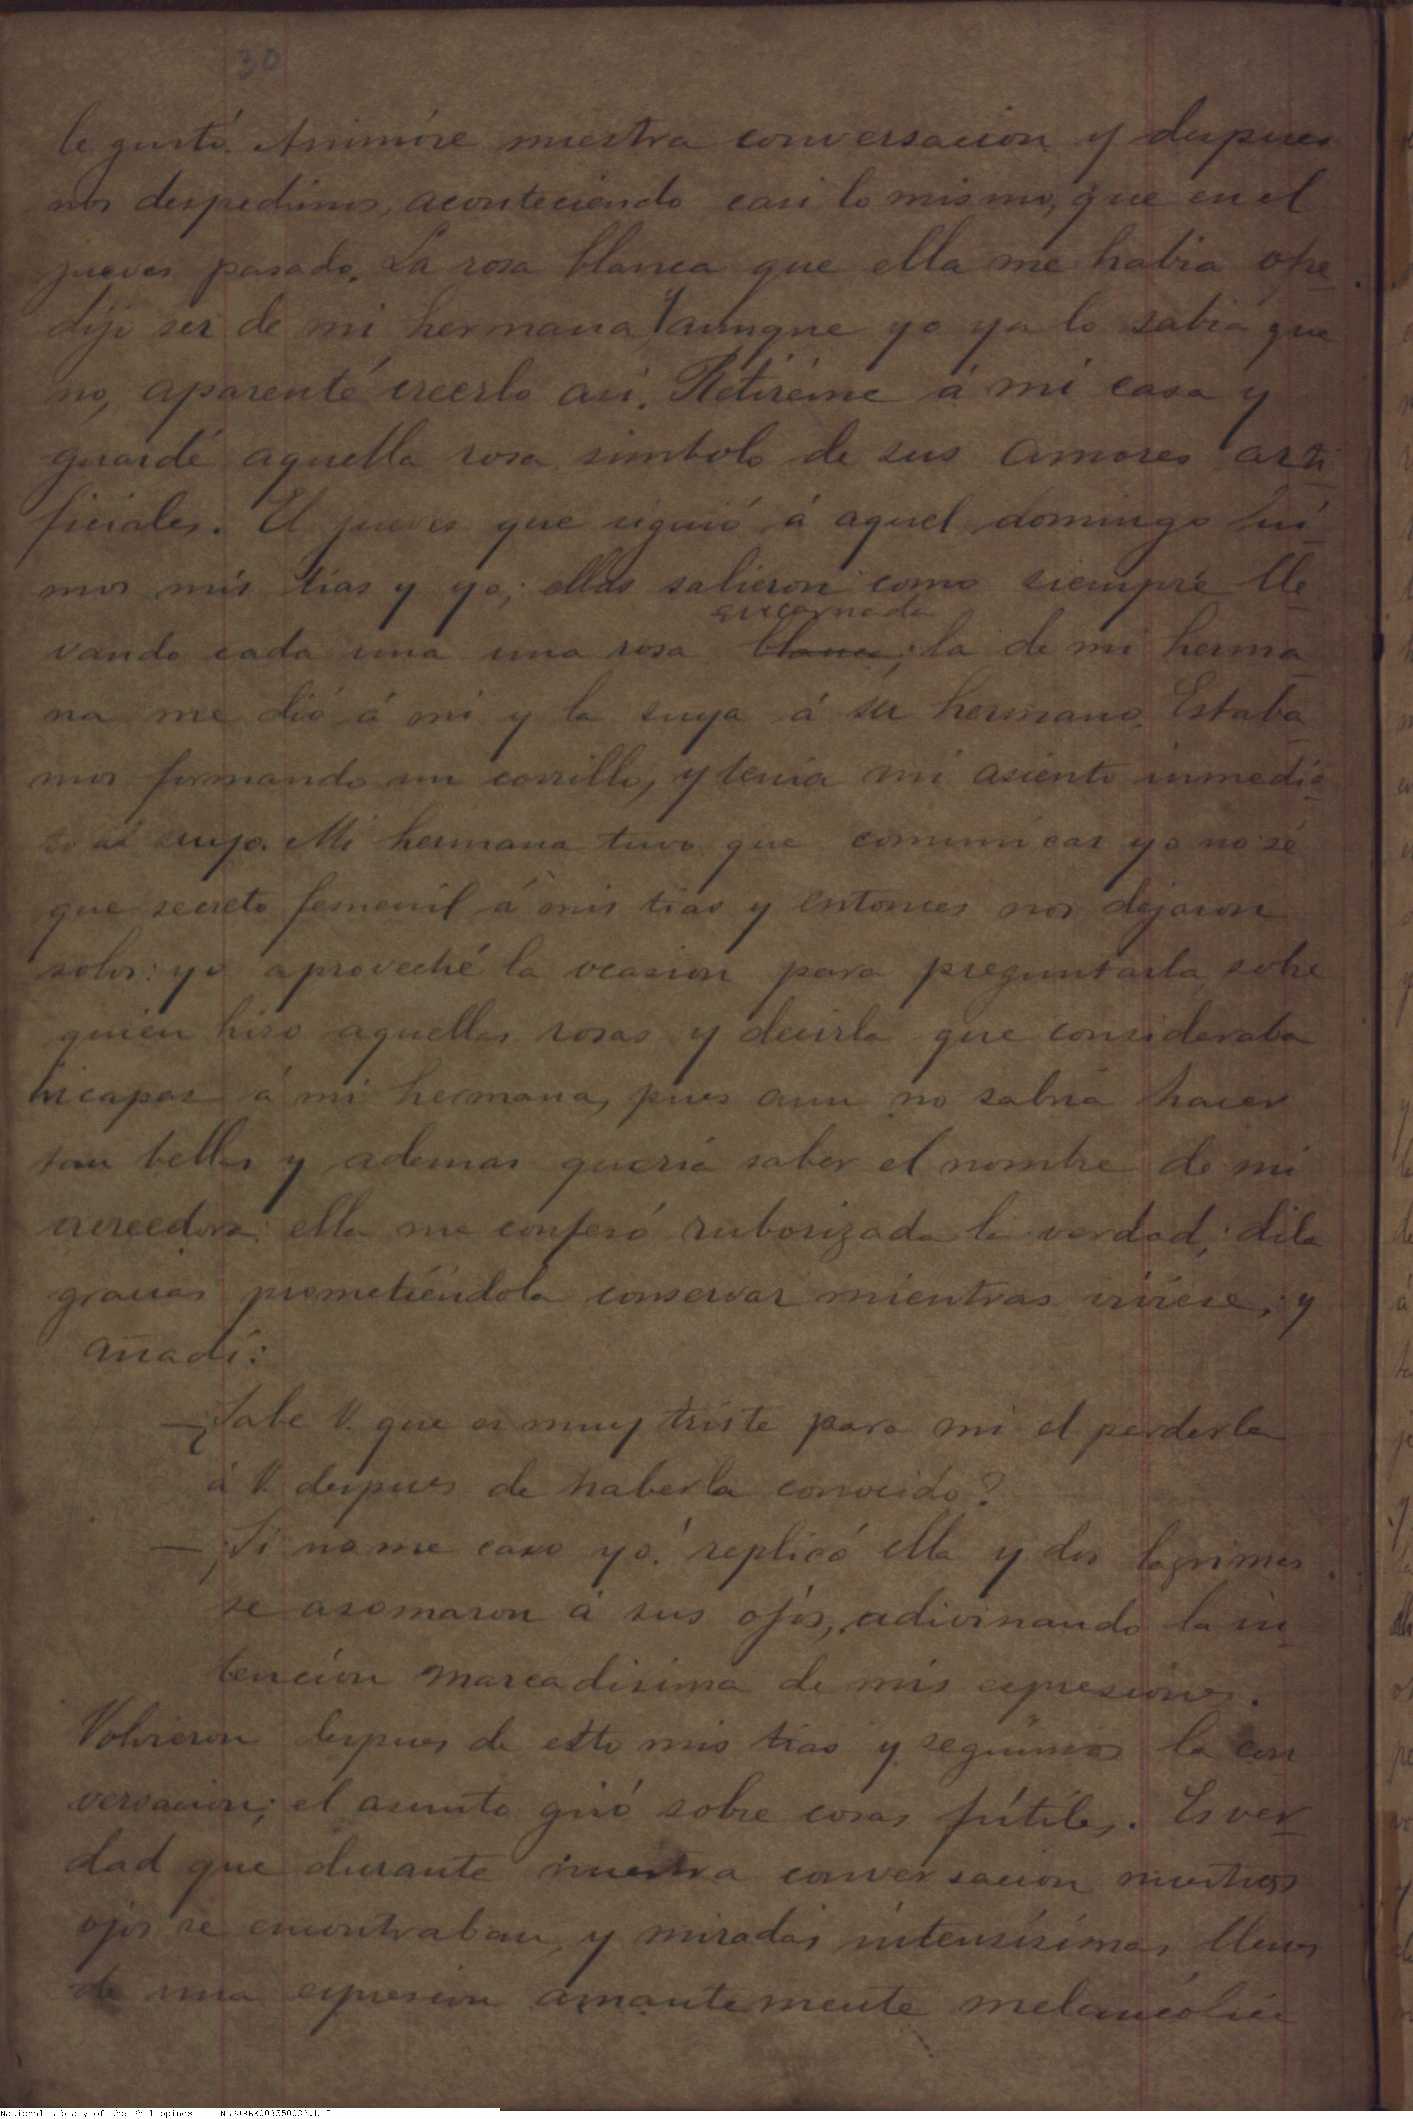 30
le gustó. Animóse nuestra conversacion y despues
nos despedimos, aconteciendo casi lo mismo, que en el
jueves pasado. La rosa blanca que ella me habia ofre
dijo ser de mi hermana y aunque yo ya lo sabia que
no, aparenté creerlo asi. Retiréme á mi casa y
guardé aquella rosa simbolo de sus amores arti-
ficiales. El jueves que siguió á aquel domingo fui-
mos mis tias y yo; ellas salieron como siempre lle-
encarnada
vando cada una una rosa blanca; la de mi herma-
na me dió á mi y la suya á su hermano. Estaba-
mos formando un corrillo, y tenia mi asiento inmedia-
to al suyo. Mi hermana tuvo que comunicar yo no sé
que secreto femenil á mis tias y entonces nos dejaron
solos: yo aproveché la ocasion para preguntarla sobre
quien hizo aquellas rosas y decirla que consideraba
incapaz á mi hermana, pues aun no sabria hacer
tan bellas y ademas queria saber el nombre de mi
acreedora: ella me confesó ruborizada la verdad; dila
gracias prometiéndola conservar mientras viviese; y
añadí:
— ¿Sabe V. que es muy triste para mi el perderla
á V. despues de haberla conocido?
— ¡Si no me caso yo! replicó ella y dos lagrimas
se asomaron á sus ojos, adivinando la in-
tención marcadisima de mis expresiones.
Volvieron despues de esto mis tias y seguimos la con
versacion; el asunto giró sobre cosas fútiles. Es ver-
dad que durante nuestra conversacion nuestros
ojos se encontraban, y miradas intensísimas llenas
de una expresion amantemente melancólica
National Library of the Philippines